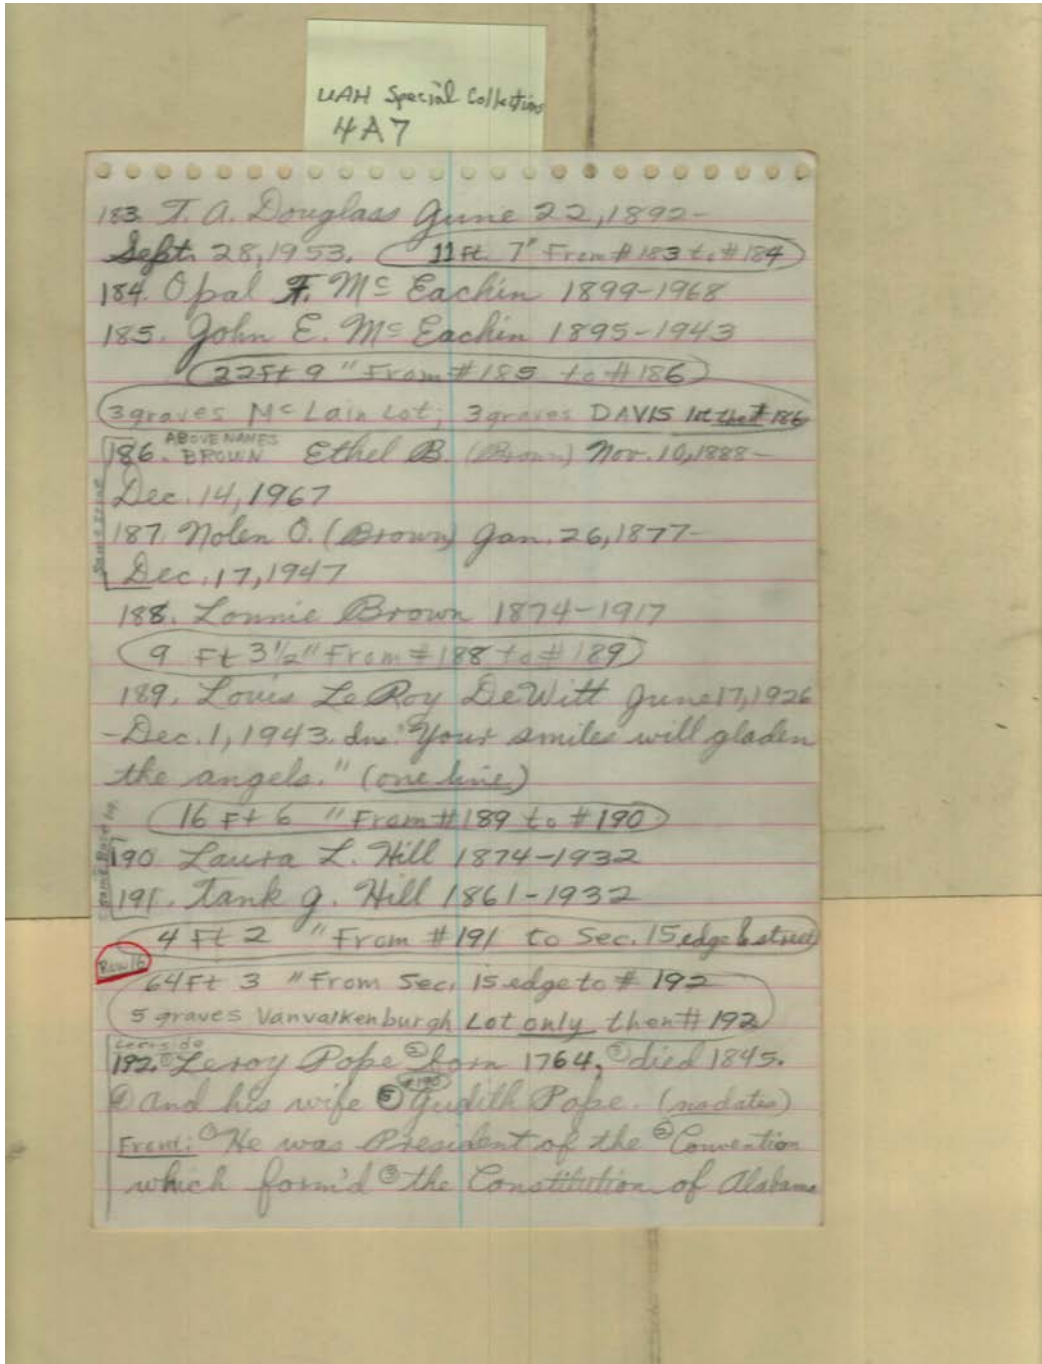 UAH Special Collections
4A7
183. T. A. Douglass June 22, 1892-
Sept. 28, 1953. 11 ft. 7" From # 183 to # 184
184. Opal F. Mc Eachin 1899-1968
185. John E. Mc Eachin 1895-1943
22 Ft 9 " From # 185 to # 186
3 graves Mc Lain Lot; 3 graves DAVIS lot then # 186
ABOVE NAMES
186. BROWN Ethel B. (Brown) Nov. 10, 1888-
Dec. 14, 1967
187. Nolen O. (Brown) Jan. 26, 1877-
Dec. 17, 1947
188. Lonnie Brown 1874-1917
9 Ft 3 1/2" From # 188 to # 189
189. Louis LeRoy DeWitt June 17, 1926
-Dec. 1, 1943. Ins. "Your smiles will gladen
the angels." (one line)
16 Ft 6 " From # 189 to # 190
190 Laura L. Hill 1874-1932
191. Tank G. Hill 1861-1932
4 Ft 2 " From # 191 to Sec. 15 edge & street
Row 16
64 Ft 3 " From Sec. 15 edge to # 192
5 graves Vanvalkenburgh Lot only then # 192
192. ① Leroy Pope ② born 1764, ③ died 1845.
④ and his wife ⑤ Judith Pope. (no dates)
Front: ① He was President of the ② Convention
which form'd ③ the Constitution of Alabama